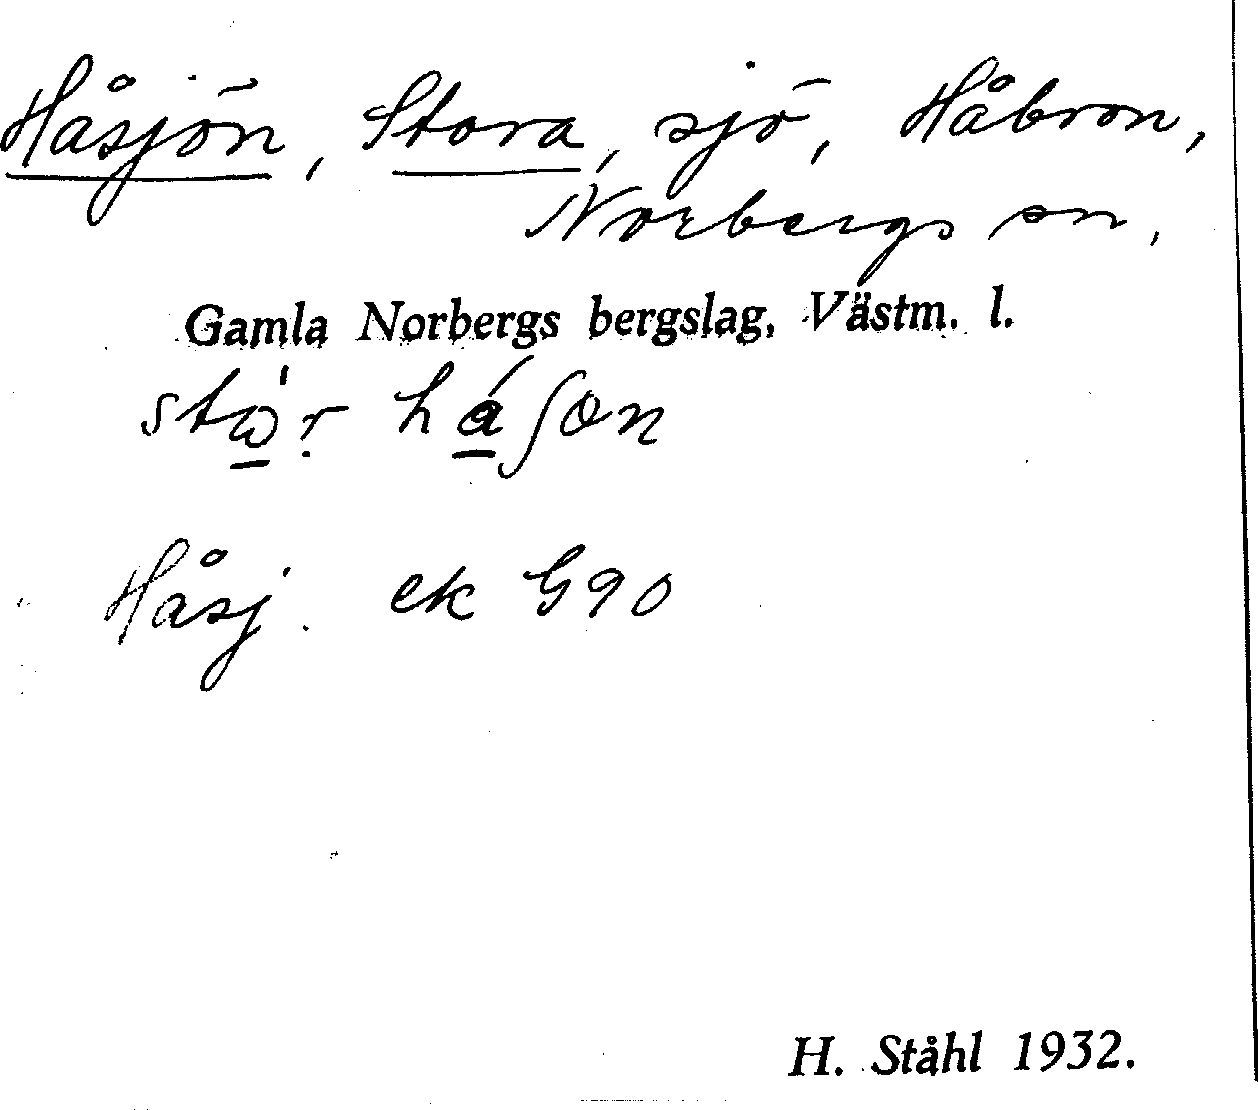 Håsjön, Stora, sjö, Håbron,
Norbergs sn,
Gamla Norbergs bergslag, Västm. l.
Håsj. ek G90
H. Ståhl 1932.